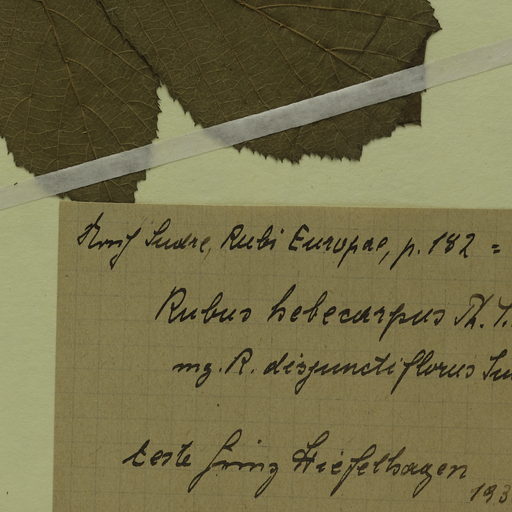 Sudre, Rubi Europae, p. 182 =
Rubus hebecarpus
mg. R. disjunctiflorus Su
teste Hiefelhagen
193